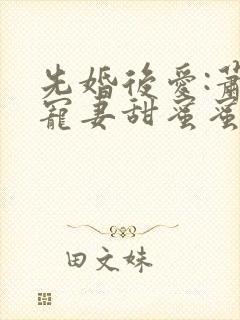 先婚後愛:蕭
寵妻甜蜜蜜
田文妹